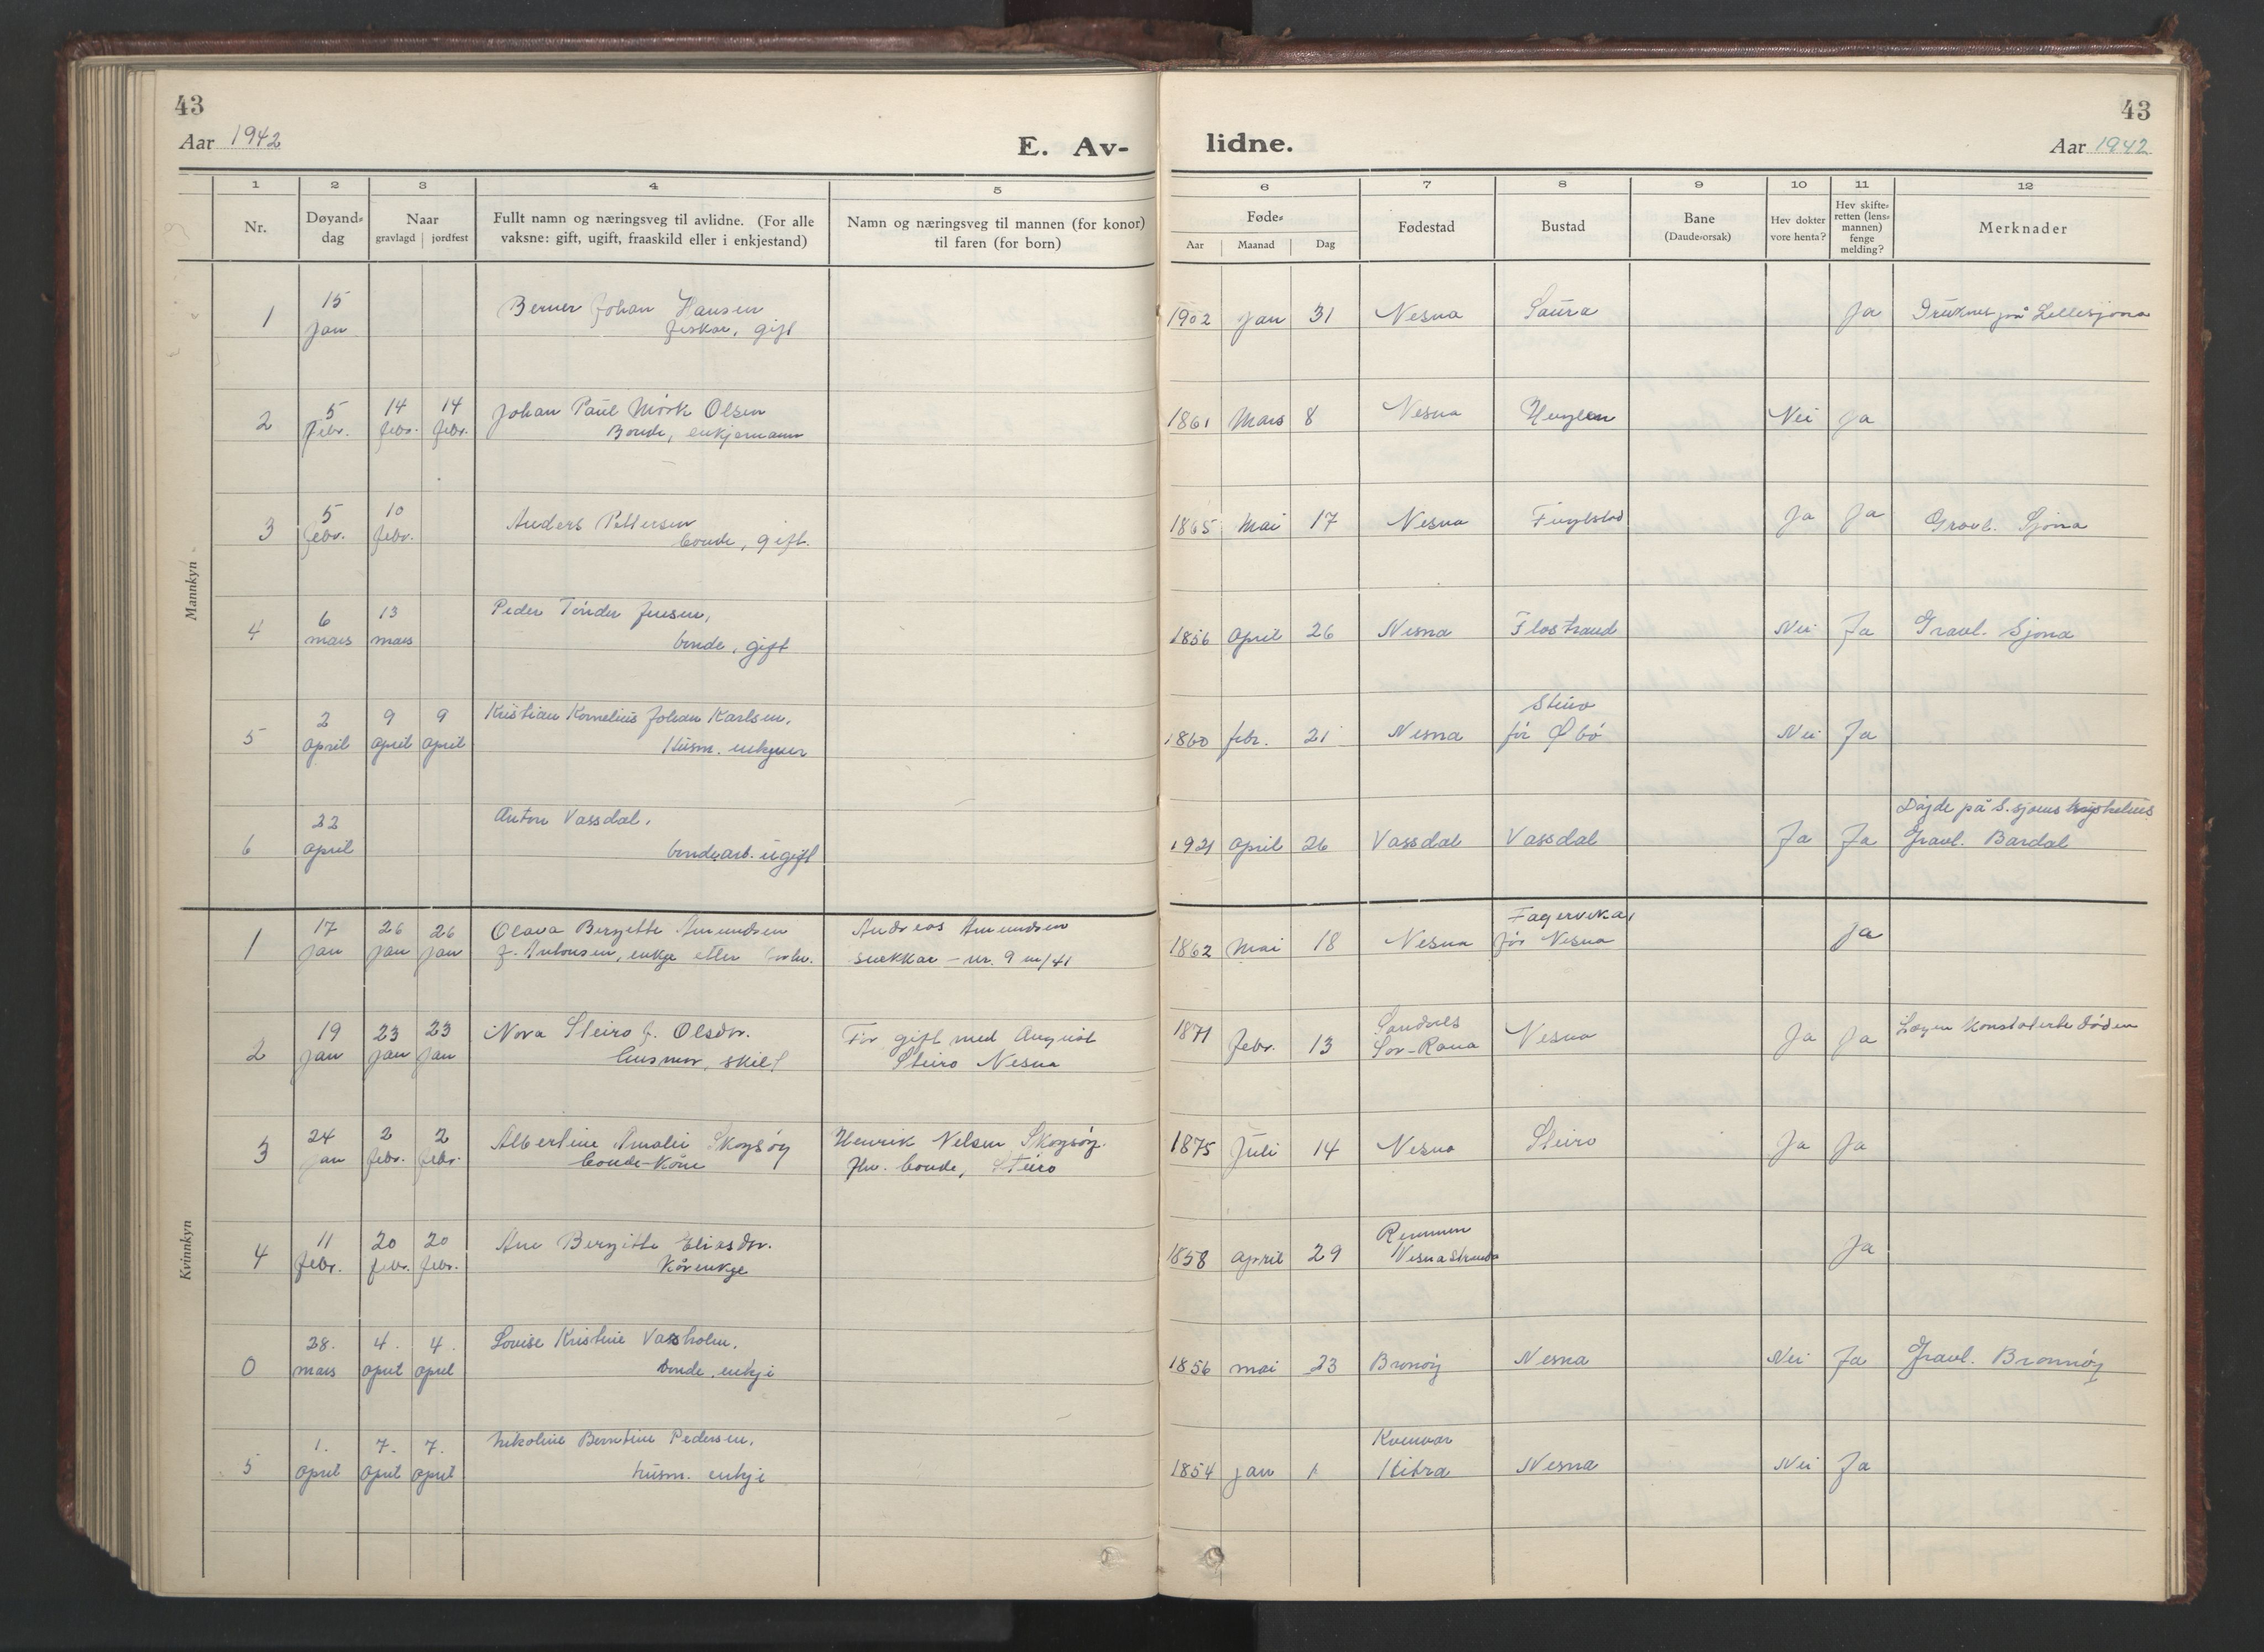 43
43
Aar 1942
E. Av-
lidne.
Aar 1942
1 2 3 4 5 6 7 8 9 10 11 12
Nr.
Døyand-
dag
Naar
gravlagd jordfest
Fullt namn og næringsveg til avlidne. (For alle
vaksne: gift, ugift, fraaskild eller i enkjestand)
Namn og næringsveg til mannen (for konor)
til faren (for born)
Føde-
Aar Maanad Dag
Fødestad
Bustad
Bane
(Daude-orsak)
Hev dokter
vore henta?
Hev skifte-
retten (lens-
mannen)
fenge
melding?
Merknader
Mannkyn
1 15 jan Berner Johan Hansen
fiskar, gift
1902 jan 31 Nesna Saura Ja Druknet på Lillesjona
2 5 febr. 14 febr. 14 febr. Johan Paul Mørk Olsen
Bonde, enkjemann
1861 Mars 8 Nesna Nei Ja
3 5 febr. 10 febr. Anders Pettersen
bonde, gift.
1865 Mai 17 Nesna Fuglstad Ja Ja Gravl. Sjona
4 6 mars 13 mars Peder Tønder Jensen,
bonde, gift
1856 april 26 Nesna Flostrand Nei Ja Gravl. Sjona
5 2 april 9 april 9 april Kristian Kornelius Johan Karlsen,
Husm. enkjem
1860 febr. 21 Nesna Steiro
før Øbø Nei Ja
6 22 april Anton Vassdal,
bondearb. ugift
1921 april 26 Vassdal Vassdal Ja Ja Døyde på S.sjøens sykehus
Gravl. Bardal
Kvinnkyn
1 17 jan 26 jan 26 jan Olava Bergette Amundsen
f. Antonsen, enkje etter
Andreas Amundsen
snekkar - nr. 9 m/41
1862 Mai 18 Nesna Fagervika,
før Nesna Ja
2 19 jan 23 jan 23 jan Nora Steiro f. Olsdtr.
husmor, skilt
Før gift med August
Steiro Nesna
1871 Febr. 13
Sør-Rana Nesna Ja Ja Lægen konstaterte døden
3 24 jan 2 febr. 2 febr. Albertine Amalie Skogsøy
bonde-kone
Henrik Nelsen Skogsøy.
fhv. bonde, Steiro
1875 Juli 14 Nesna Steiro Ja Ja
4 11 febr. 20 febr. 20 febr. Ane Bergitte Eliasdtr.
kårenkje
1858 april 29 Remmen
Nesnastranda Ja
0 28. mars 4. april 4. april Lovise Kristine Vassholm,
bonde, enkje
1856 mai 23 Brønøy Nesna Nei Ja Gravl. Brønnøy
5 1. april 7. april 7. april Nikoline Berntine Pedersen,
husm. enkje
1854 jan 1 Kvenvær
Hitra Nesna Nei Ja